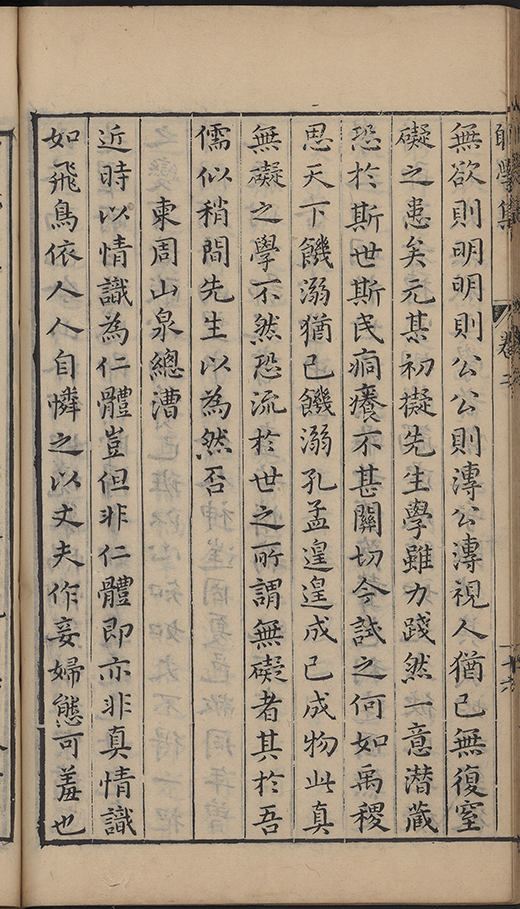 學集
卷二
十六
無欲則明明則公公則溥公溥視人猶已無復窒
礙之患矣元某初擬先生學雖力踐然一意潛藏
恐於斯世斯民痌癢不甚關切今試之何如禹稷
思天下饑溺猶已饑溺孔孟遑遑成已成物此真
無礙之學不然恐流於世之所謂無礙者其於吾
儒似稍間先生以為然否
柬周山泉總漕
近時以情識為仁體豈但非仁體即亦非真情識
如飛鳥依人人自憐之以丈夫作妾婦態可羞也